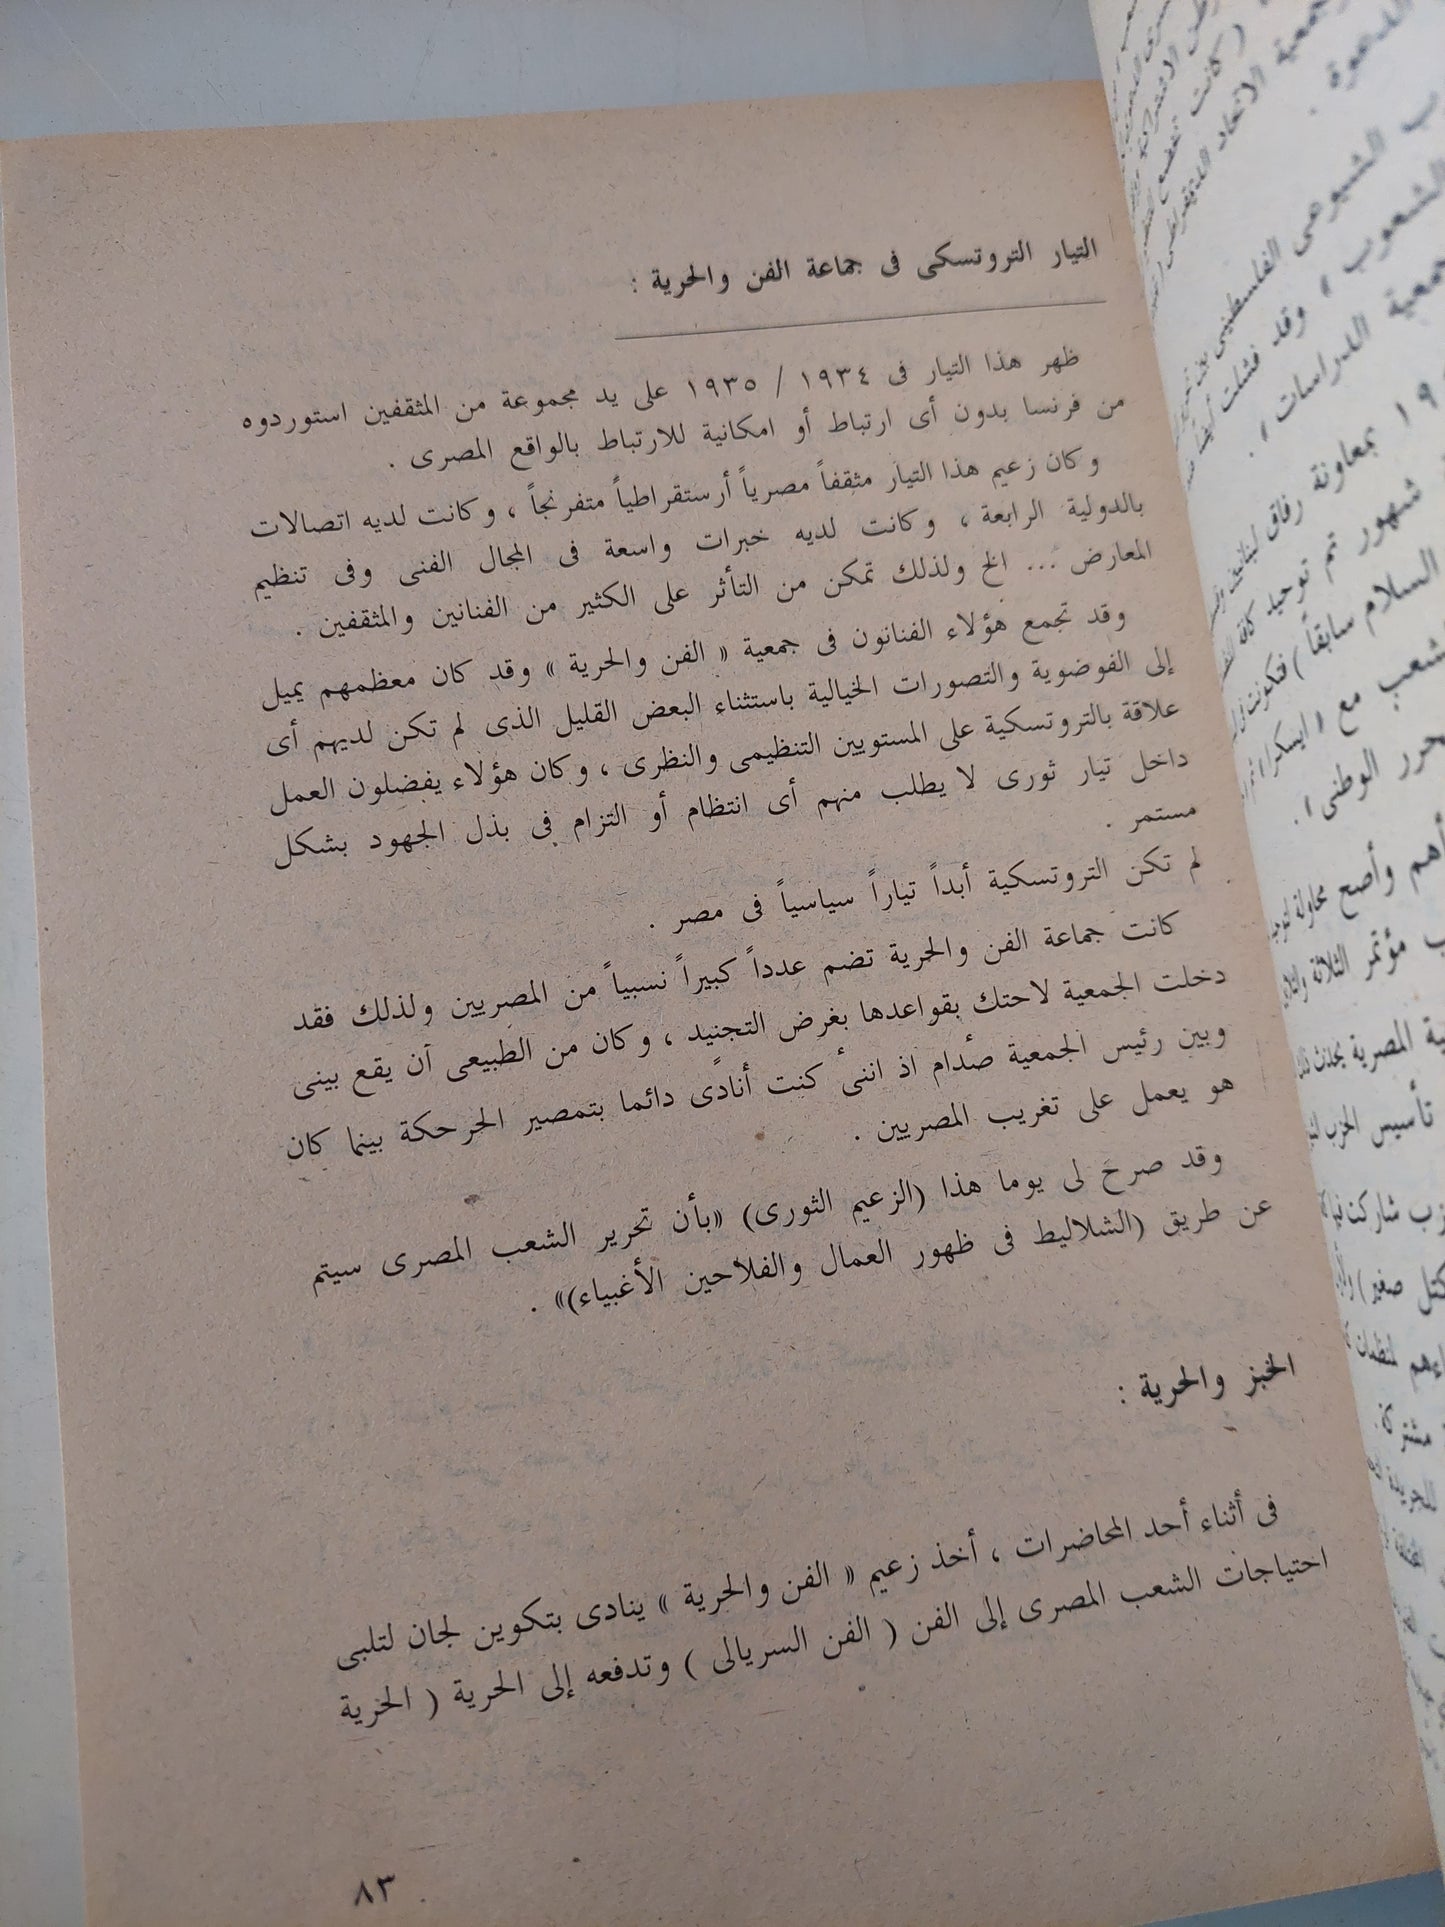 التيار التروتسكى فى جماعة الفن والحرية :
ظهر هذا التيار فى ١٩٣٤ / ١٩٣٥ على يد مجموعة من المثقفين استوردوه
من فرنسا بدون أى ارتباط أو امكانية للارتباط بالواقع المصرى .
وكان زعيم هذا التيار مثقفاً مصرياً أرستقراطياً متفرنجاً ، وكانت لديه اتصالات
بالدولية الرابعة ، وكانت لديه خبرات واسعة فى المجال الفنى وفى تنظيم
المعارض ... الخ ولذلك تمكن من التأثر على الكثير من الفنانين والمثقفين .
وقد تجمع هؤلاء الفنانون فى جمعية « الفن والحرية » وقد كان معظمهم يميل
إلى الفوضوية والتصورات الخيالية باستثناء البعض القليل الذى لم تكن لديهم أى
علاقة بالتروتسكية على المستويين التنظيمى والنظرى ، وكان هؤلاء يفضلون العمل
داخل تيار ثورى لا يطلب منهم أى انتظام أو التزام فى بذل الجهود بشكل
مستمر .
لم تكن التروتسكية أبداً تياراً سياسياً فى مصر .
كانت جماعة الفن والحرية تضم عدداً كبيراً نسبياً من المصريين ولذلك فقد
دخلت الجمعية لاحتك بقواعدها بغرض التجنيد ، وكان من الطبيعى أن يقع بينى
وبين رئيس الجمعية صدام اذ اننى كنت أنادى دائما بتمصير الحرحكة بينما كان
هو يعمل على تغريب المصريين .
وقد صرح لى يوما هذا (الزعيم الثورى) «بأن تحرير الشعب المصرى سيتم
عن طريق (الشلاليط فى ظهور العمال والفلاحين الأغبياء)» .
الخبز والحرية :
فى أثناء أحد المحاضرات ، أخذ زعيم « الفن والحرية » ينادى بتكوين لجان لتلبى
احتياجات الشعب المصرى إلى الفن ( الفن السريالى ) وتدفعه إلى الحرية ( الحرية
٨٣